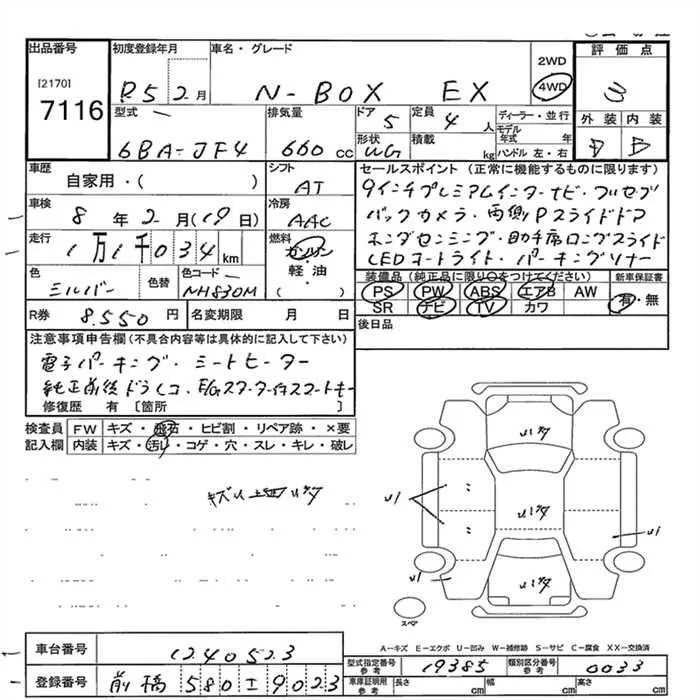 出品番号
[2170]
7116
初度登録年月
車名・グレード
R5 2月
N-BOX EX
2WD
4WD
評価点
3
外装 内装
D B
型式
6BA-JF4
排気量
660cc
ドア
5
形状
WG
定員
4人
積載
kg
ディーラー・並行
モデル年式 年
ハンドル 左・右
車歴
自家用・( )
シフト
AT
車検
8年2月(19日)
冷房
AAC
走行
1万1千034km
燃料
ガソリン
軽・油
( )
色
シルバー
色替
色コード
NH830M
セールスポイント (正常に機能するものに限ります)
9インチプレミアムインターナビ・フルセグ
バックカメラ・両側Pスライドドア
ホンダセンシング・助手席ロングスライド
LEDオートライト・パーキングソナー
装備品(純正品に限り○をつけてください)
PS PW ABS エアB AW
SR ナビ TV カワ
新車保証書
有・無
後日品
R券
8,550円
名変期限 月 日
注意事項申告欄(不具合内容等は具体的に記入して下さい)
電子パーキング・シートヒーター
純正前後ドラレコ・E/Gスターター付スマートキー
修復歴 有 [箇所 ]
検査員記入欄
FW キズ・飛石・ヒビ割・リペア跡・×要
内装 キズ・汚れ・コゲ・穴・スレ・キレ・破レ
U1
U1
U1
スペア
A-キズ E-エクボ U-凹み W-補修跡 S-サビ C-腐食 XX-交換済
車台番号
1240523
登録番号
前橋 580 ± 9023
型式指定番号 参考
19385
類別区分番号 参考
0033
車庫証明用 参考
長さ cm 幅 cm 高さ cm